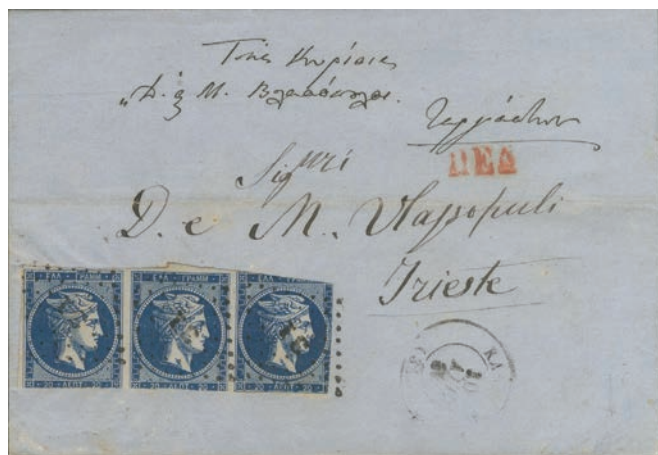 Τοὺς Κυρίους
„Δ. & Μ. Βλασσόπουλοι.
Τεργέστην
ΠΕΔ
Sig.ri
D. e M. Vlassopuli
Trieste
ΕΛΛ ΓΡΑΜΜ
ΕΛΛ ΓΡΑΜΜ
ΕΛΛ ΓΡΑΜΜ
20 ΛΕΠΤ 20
20 ΛΕΠΤ 20
20 ΛΕΠΤ 20
ΚΑ